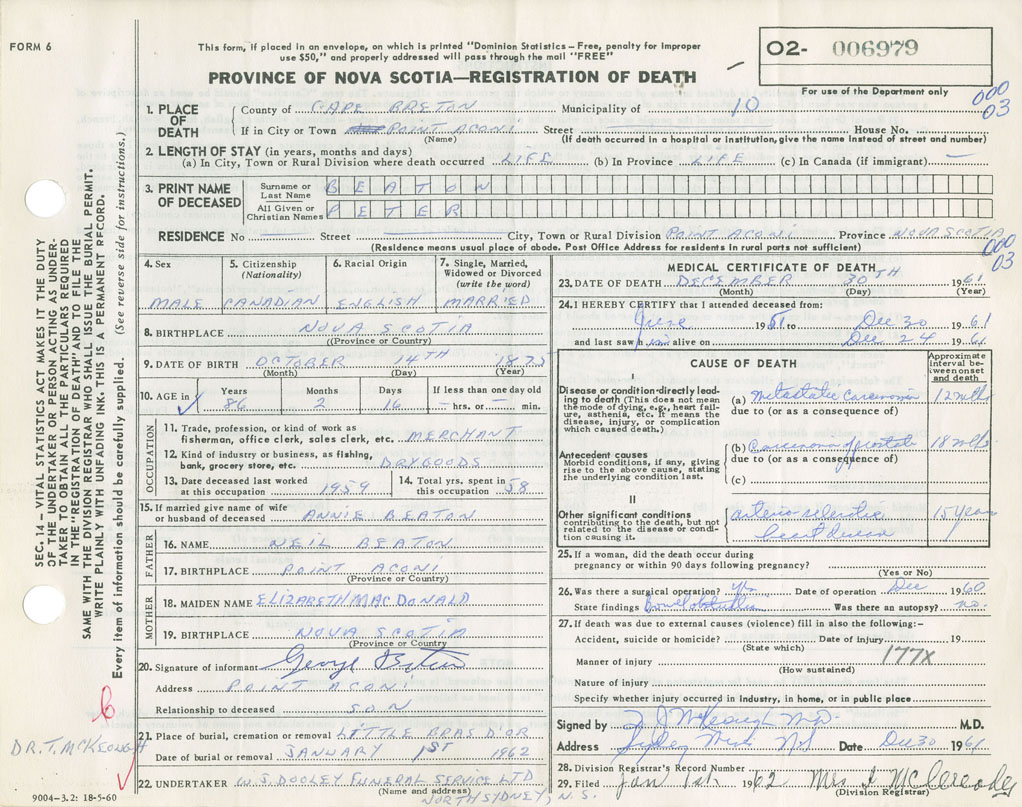 FORM 6
This form, if placed in an envelope, on which is printed "Dominion Statistics – Free, penalty for improper
use $50," and properly addressed will pass through the mail "FREE"
PROVINCE OF NOVA SCOTIA—REGISTRATION OF DEATH
02- 006979
For use of the Department only
000
03
1. PLACE OF DEATH
County of CAPE BRETON Municipality of 10
If in City or Town POINT ACONI Street House No.
(Name) (If death occurred in a hospital or institution, give the name instead of street and number)
2. LENGTH OF STAY (in years, months and days)
(a) In City, Town or Rural Division where death occurred LIFE (b) In Province LIFE (c) In Canada (if immigrant) —
3. PRINT NAME OF DECEASED
Surname or Last Name BEATON
All Given or Christian Names PETER
RESIDENCE No Street City, Town or Rural Division POINT ACONI Province NOVA SCOTIA
(Residence means usual place of abode. Post Office Address for residents in rural parts not sufficient)
000
03
4. Sex 5. Citizenship (Nationality) 6. Racial Origin 7. Single, Married, Widowed or Divorced (write the word)
MALE CANADIAN ENGLISH MARRIED
8. BIRTHPLACE NOVA SCOTIA
((Province or Country)
9. DATE OF BIRTH OCTOBER 14TH 1875
(Month) (Day) (Year)
10. AGE in Years Months Days If less than one day old
86 2 16 — hrs. or — min.
OCCUPATION
11. Trade, profession, or kind of work as
fisherman, office clerk, sales clerk, etc. MERCHANT
12. Kind of industry or business, as fishing,
bank, grocery store, etc. DRYGOODS
13. Date deceased last worked at this occupation 1959
14. Total yrs. spent in this occupation 58
15. If married give name of wife
or husband of deceased ANNIE BEATON
FATHER
16. NAME NEIL BEATON
17. BIRTHPLACE POINT ACONI
(Province or Country)
MOTHER
18. MAIDEN NAME ELIZABETH MACDONALD
19. BIRTHPLACE NOVA SCOTIA
(Province or Country)
20. Signature of informant George Beaton
Address POINT ACONI
Relationship to deceased SON
21. Place of burial, cremation or removal LITTLE BRAS D'OR
Date of burial or removal JANUARY 1ST 1962
22. UNDERTAKER W.J. DOOLEY FUNERAL SERVICE LTD
(Name and address)
NORTH SYDNEY, N.S.
MEDICAL CERTIFICATE OF DEATH
23. DATE OF DEATH DECEMBER 30TH 1961
(Month) (Day) (Year)
24. I HEREBY CERTIFY that I attended deceased from:
June 1951 to Dec 30 1961
and last saw him alive on Dec 24 1961
CAUSE OF DEATH
Approximate interval between onset and death
I
Disease or condition directly leading to death (This does not mean the mode of dying, e.g., heart failure, asthenia, etc. It means the disease, injury, or complication which caused death.)
(a) Metastatic Carcinoma 12 mths
due to (or as a consequence of)
Antecedent causes
Morbid conditions, if any, giving rise to the above cause, stating the underlying condition last.
(b) Carcinoma of prostate 18 mths.
due to (or as a consequence of)
(c)
II
Other significant conditions
contributing to the death, but not related to the disease or condition causing it.
arterio sclerotic 15 years
heart disease
25. If a woman, did the death occur during
pregnancy or within 90 days following pregnancy?
(Yes or No)
26. Was there a surgical operation? yes Date of operation Dec 1960
State findings Bowel obstruction Was there an autopsy? no.
27. If death was due to external causes (violence) fill in also the following:–
Accident, suicide or homicide? Date of injury 19
(State which)
177X
Manner of injury
(How sustained)
Nature of injury
Specify whether injury occurred in industry, in home, or in public place
Signed by T J McKeough M.D. M.D.
Address Sydney Mines NS Date Dec 30 1961
28. Division Registrar's Record Number
29. Filed Jan 1st 1962
(Division Registrar)
SEC. 14 – VITAL STATISTICS ACT MAKES IT THE DUTY
OF THE UNDERTAKER OR PERSON ACTING AS UNDER-
TAKER TO OBTAIN ALL THE PARTICULARS REQUIRED
IN THE "REGISTRATION OF DEATH" AND TO FILE THE
SAME WITH THE DIVISION REGISTRAR WHO SHALL ISSUE THE BURIAL PERMIT.
WRITE PLAINLY WITH UNFADING INK. THIS IS A PERMANENT RECORD.
Every item of information should be carefully supplied. (See reverse side for instructions.)
6
DR. T. MCKEOUGH
9004-3.2: 18-5-60